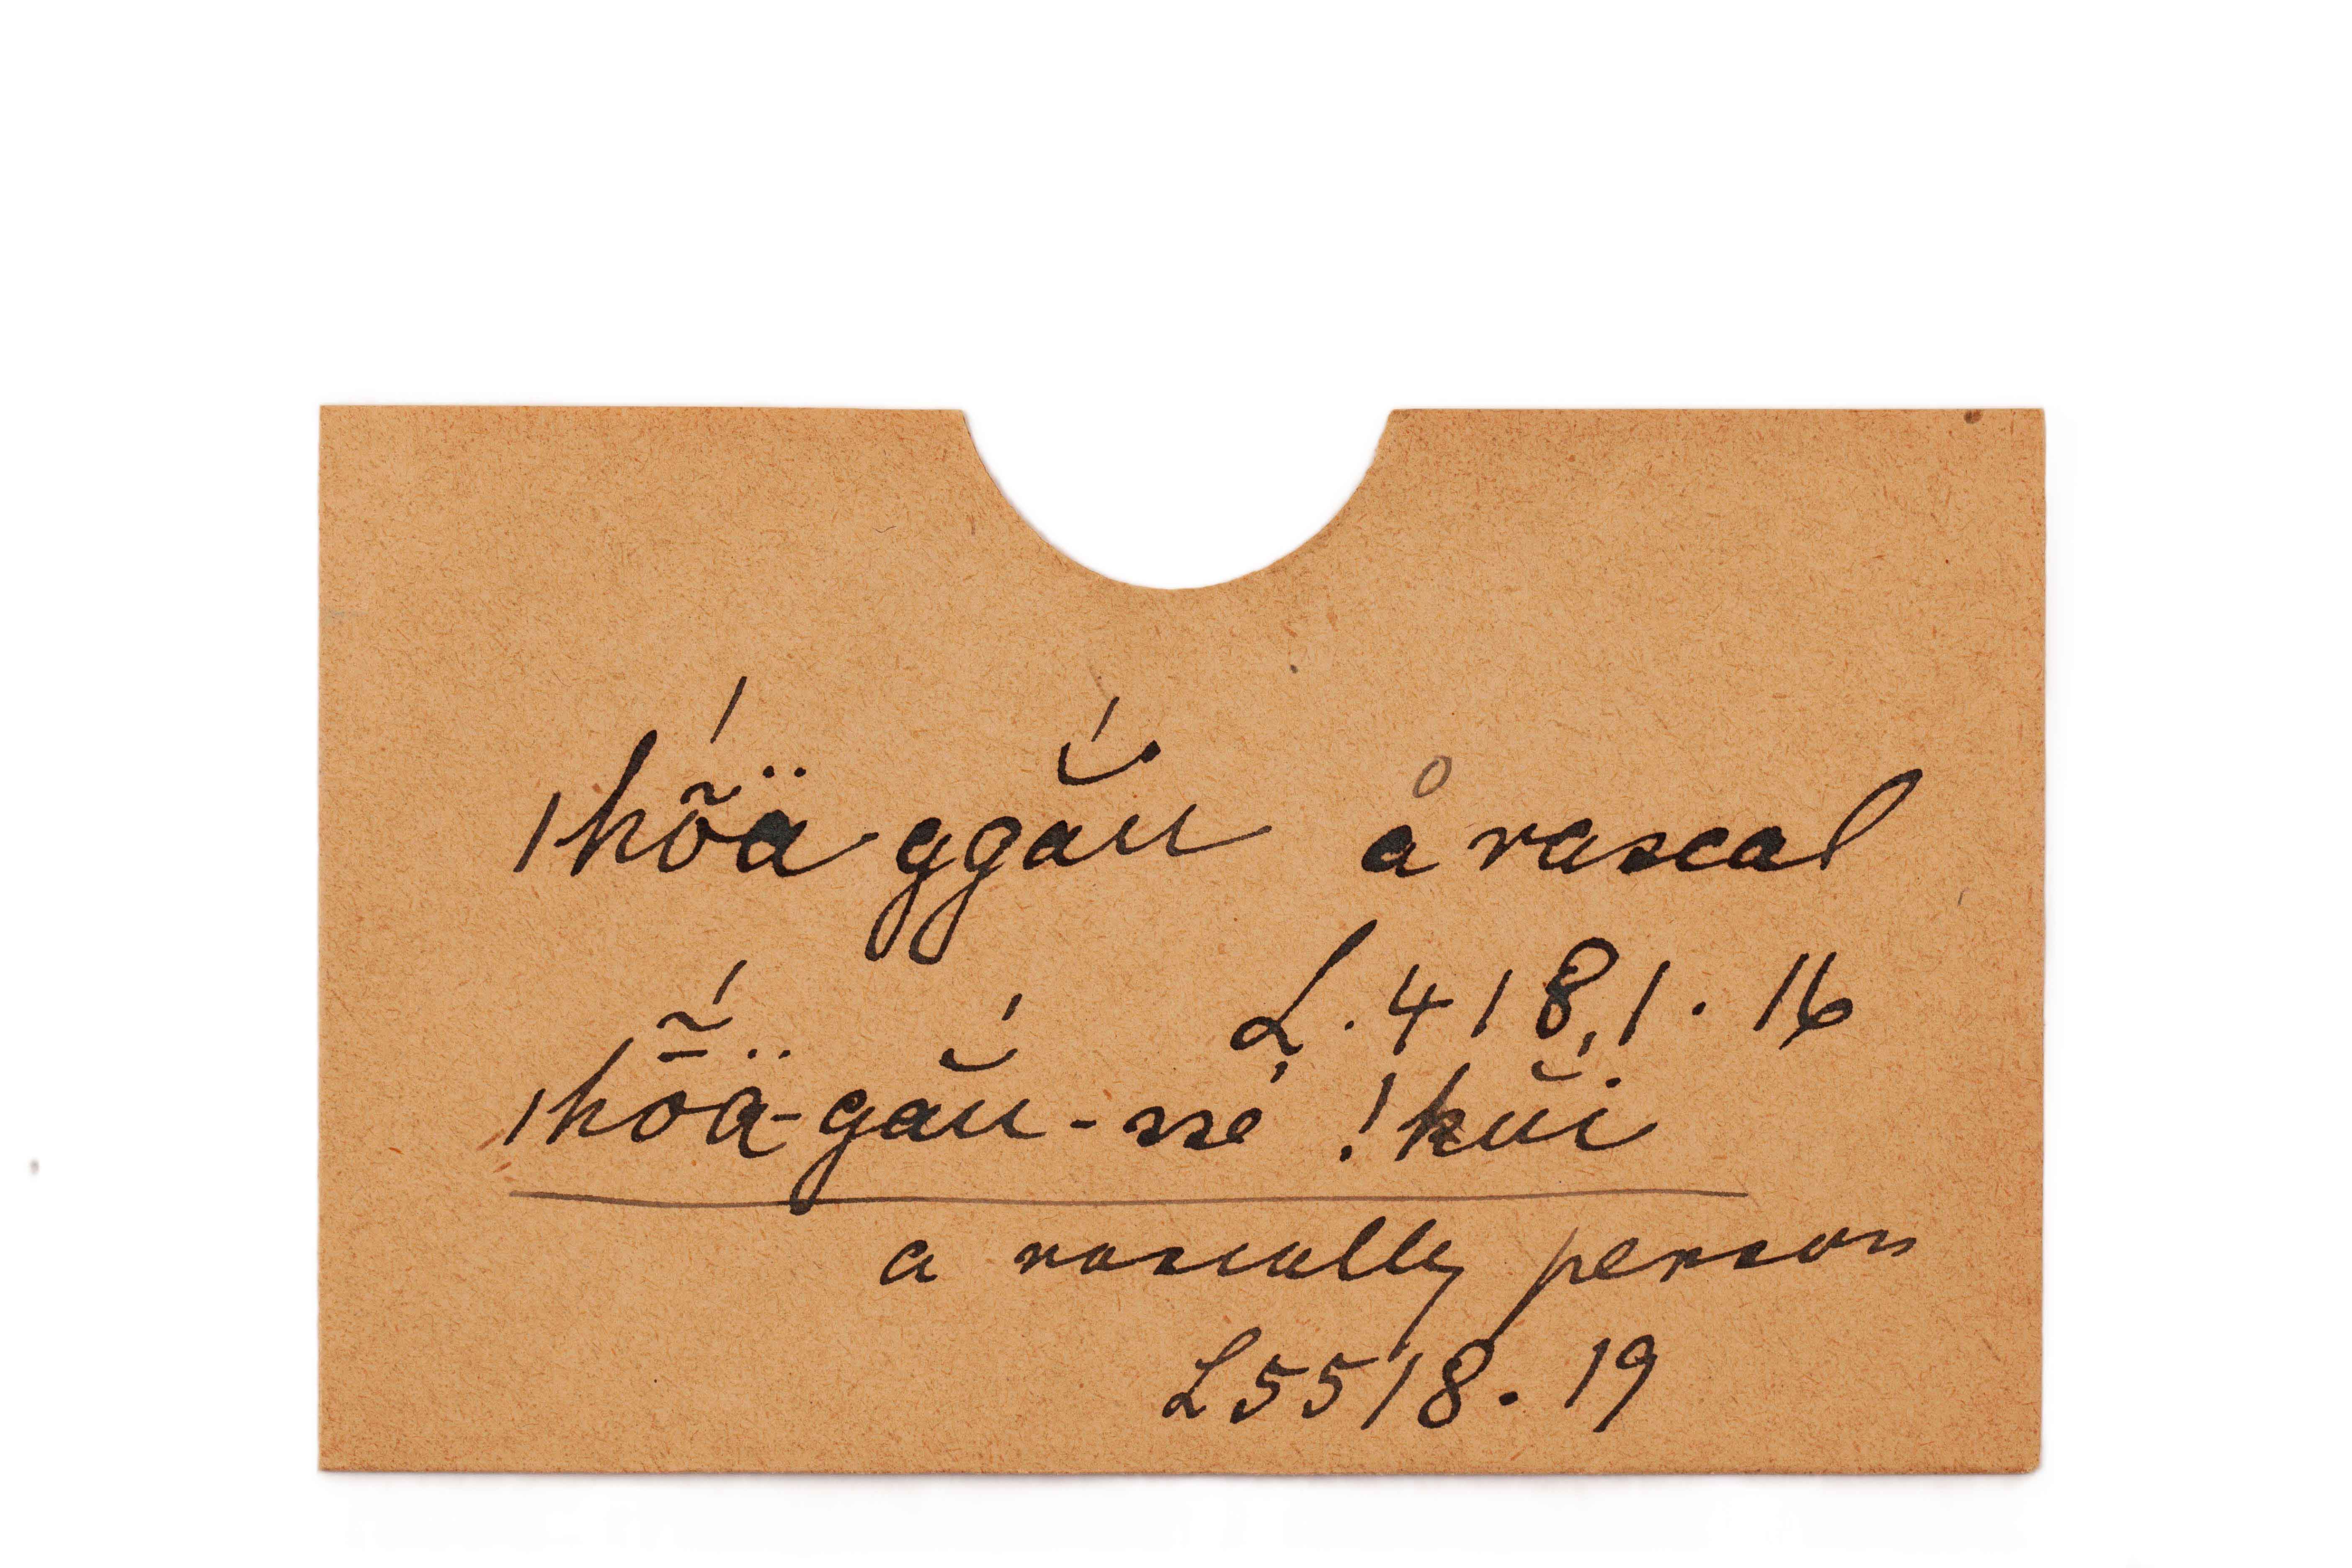 ǀhṍä ggắu a rascal
L. 4181. 16
ǀhṓ̃ä-gắu-ssé !kúi
a rascally person
L5518. 19